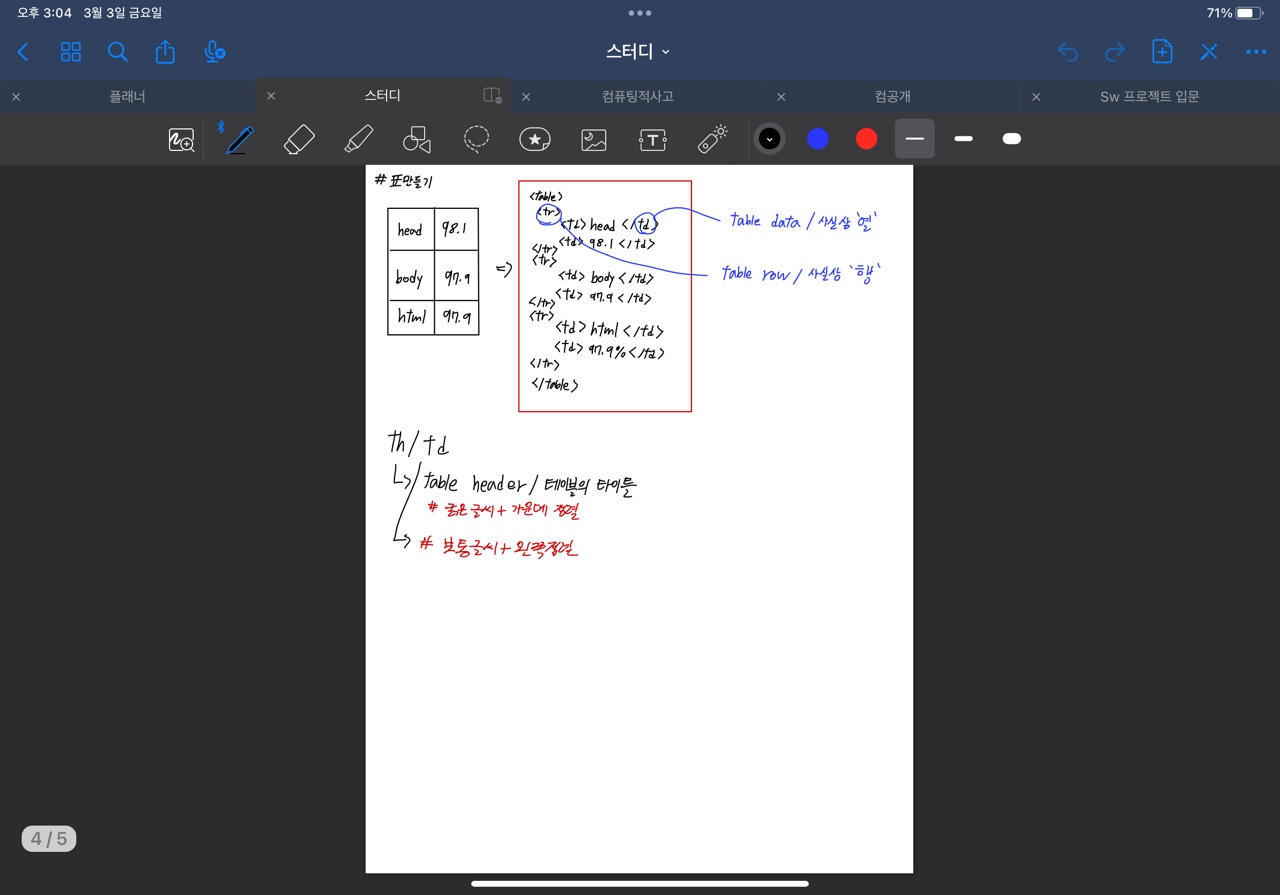 오후 3:04 3월 3일 금요일
71%
스터디
플래너
스터디
컴퓨팅적사고
컴공개
Sw 프로젝트 입문
# 표만들기
head 98.1
body 97.9
html 97.9
=>
<table>
<tr>
<td> head </td>
<td> 98.1 </td>
</tr>
<tr>
<td> body </td>
<td> 97.9 </td>
</tr>
<tr>
<td> html </td>
<td> 97.9% </td>
</tr>
</table>
table data / 사실상 '열'
table row / 사실상 '행'
th / td
table header / 테이블의 타이틀
# 굵은 글씨 + 가운데 정렬
# 보통글씨 + 왼쪽정렬
4 / 5